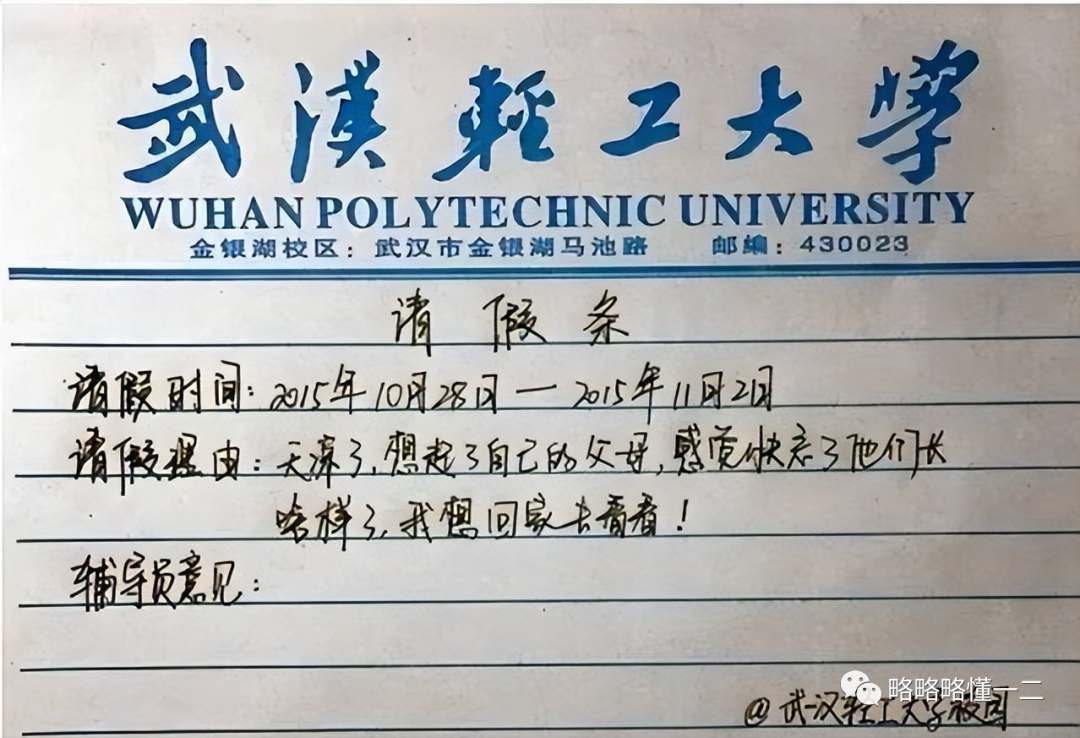 武漢輕工大學
WUHAN POLYTECHNIC UNIVERSITY
金银湖校区：武汉市金银湖马池路 邮编：430023
请假条
请假时间：2015年10月28日—2015年11月2日
请假理由：天凉了，想起了自己的父母，感觉快忘了他们长
啥样了，我想回家去看看！
辅导员意见：
略略略懂一二
@武汉轻工大学校园